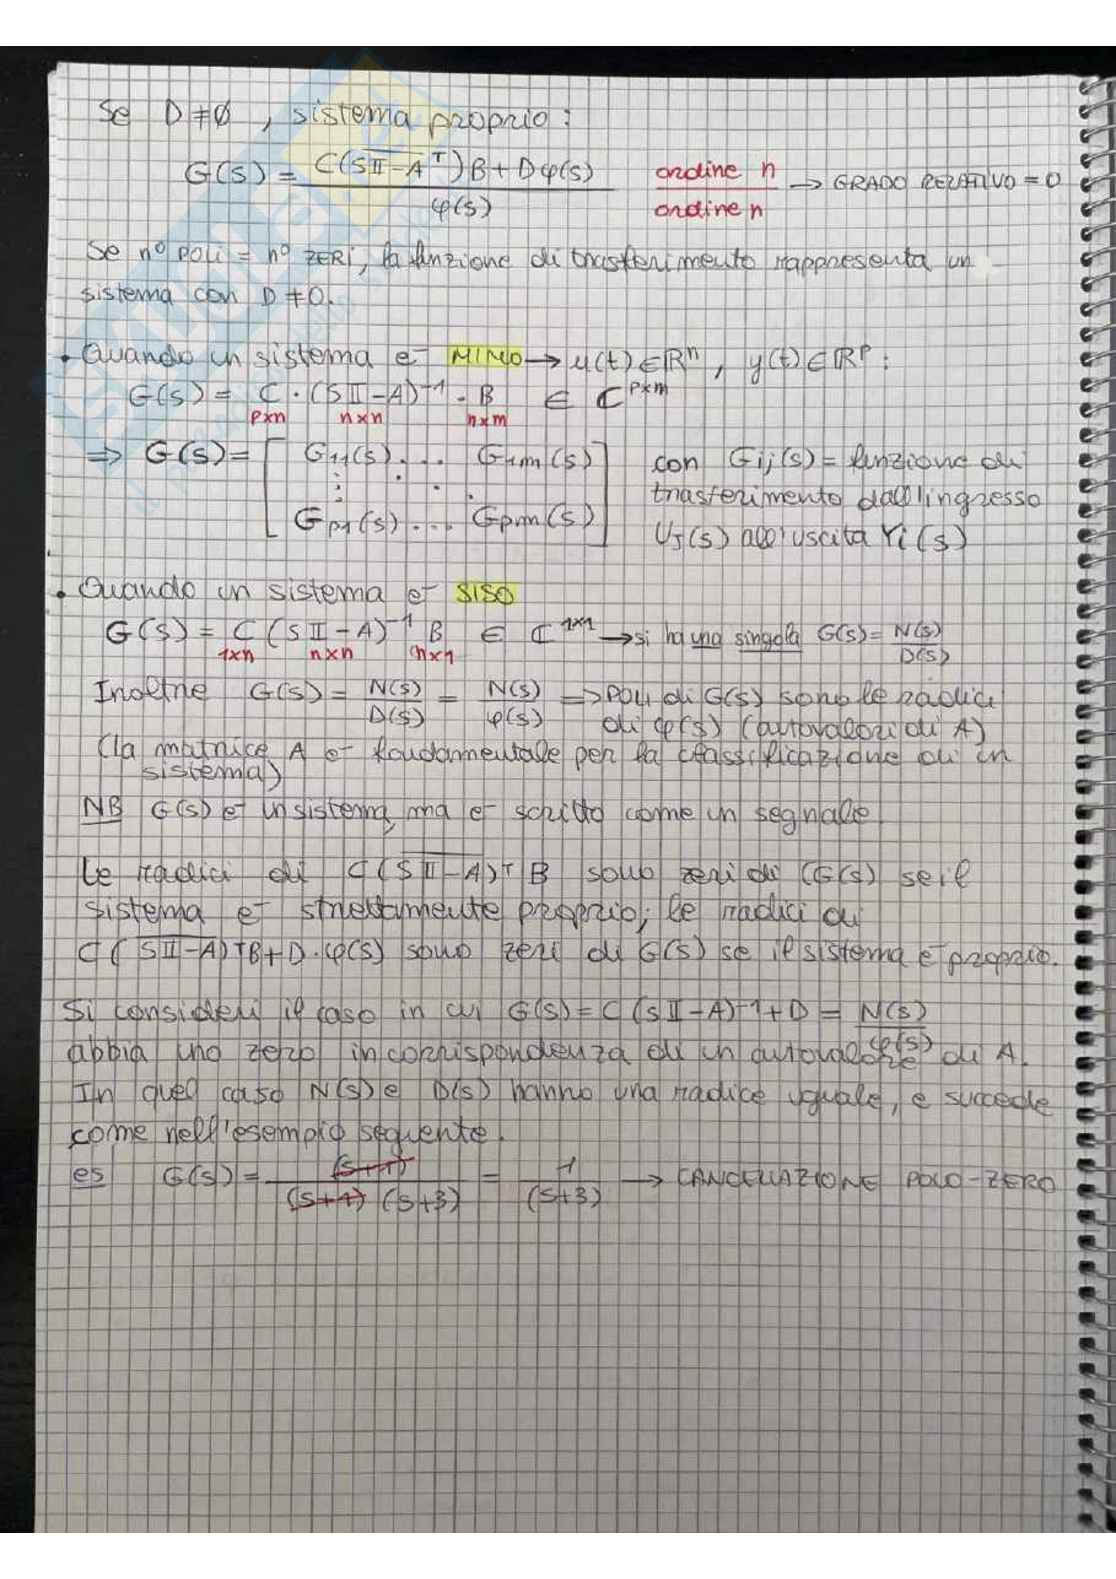 Se D ≠ 0, sistema proprio:
G(s) = C(sI-A^T)B + Dφ(s) / φ(s)    ordine n / ordine n → GRADO RELATIVO = 0
Se n° POLI = n° ZERI, la funzione di trasferimento rappresenta un
sistema con D ≠ 0.
• Quando un sistema è MIMO → u(t) ∈ ℝ^n, y(t) ∈ ℝ^p:
G(s) = C · (sI-A)^-1 · B ∈ ℂ^p×m
p×n n×n n×m
⇒ G(s) = [ G11(s) ... G1m(s)    con Gij(s) = funzione di
⋮ ⋱ trasferimento dall'ingresso
Gp1(s) ... Gpm(s) ]    Uj(s) all'uscita Yi(s)
• Quando un sistema è SISO
G(s) = C (sI-A)^-1 B ∈ ℂ^1×1 → si ha una singola G(s) = N(s)/D(s)
1×n n×n n×1
Inoltre G(s) = N(s)/D(s) = N(s)/φ(s) ⇒ poli di G(s) sono le radici
di φ(s) (autovalori di A)
(la matrice A è foudamentale per la classificazione di un
sistema)
NB G(s) è un sistema, ma è scritto come un segnale.
Le radici di C(sI-A)^T B sono zeri di G(s) se il
sistema è strettamente proprio; le radici di
C(sI-A)^T B + D·φ(s) sono zeri di G(s) se il sistema è proprio.
Si consideri il caso in cui G(s) = C(sI-A)^-1 + D = N(s)/φ(s)
abbia uno zero in corrispondenza di un autovalore di A.
In quel caso N(s) e D(s) hanno una radice uguale, e succede
come nell'esempio seguente.
es G(s) = (s+1) / (s+1)(s+3) = 1/(s+3) → CANCELLAZIONE POLO-ZERO